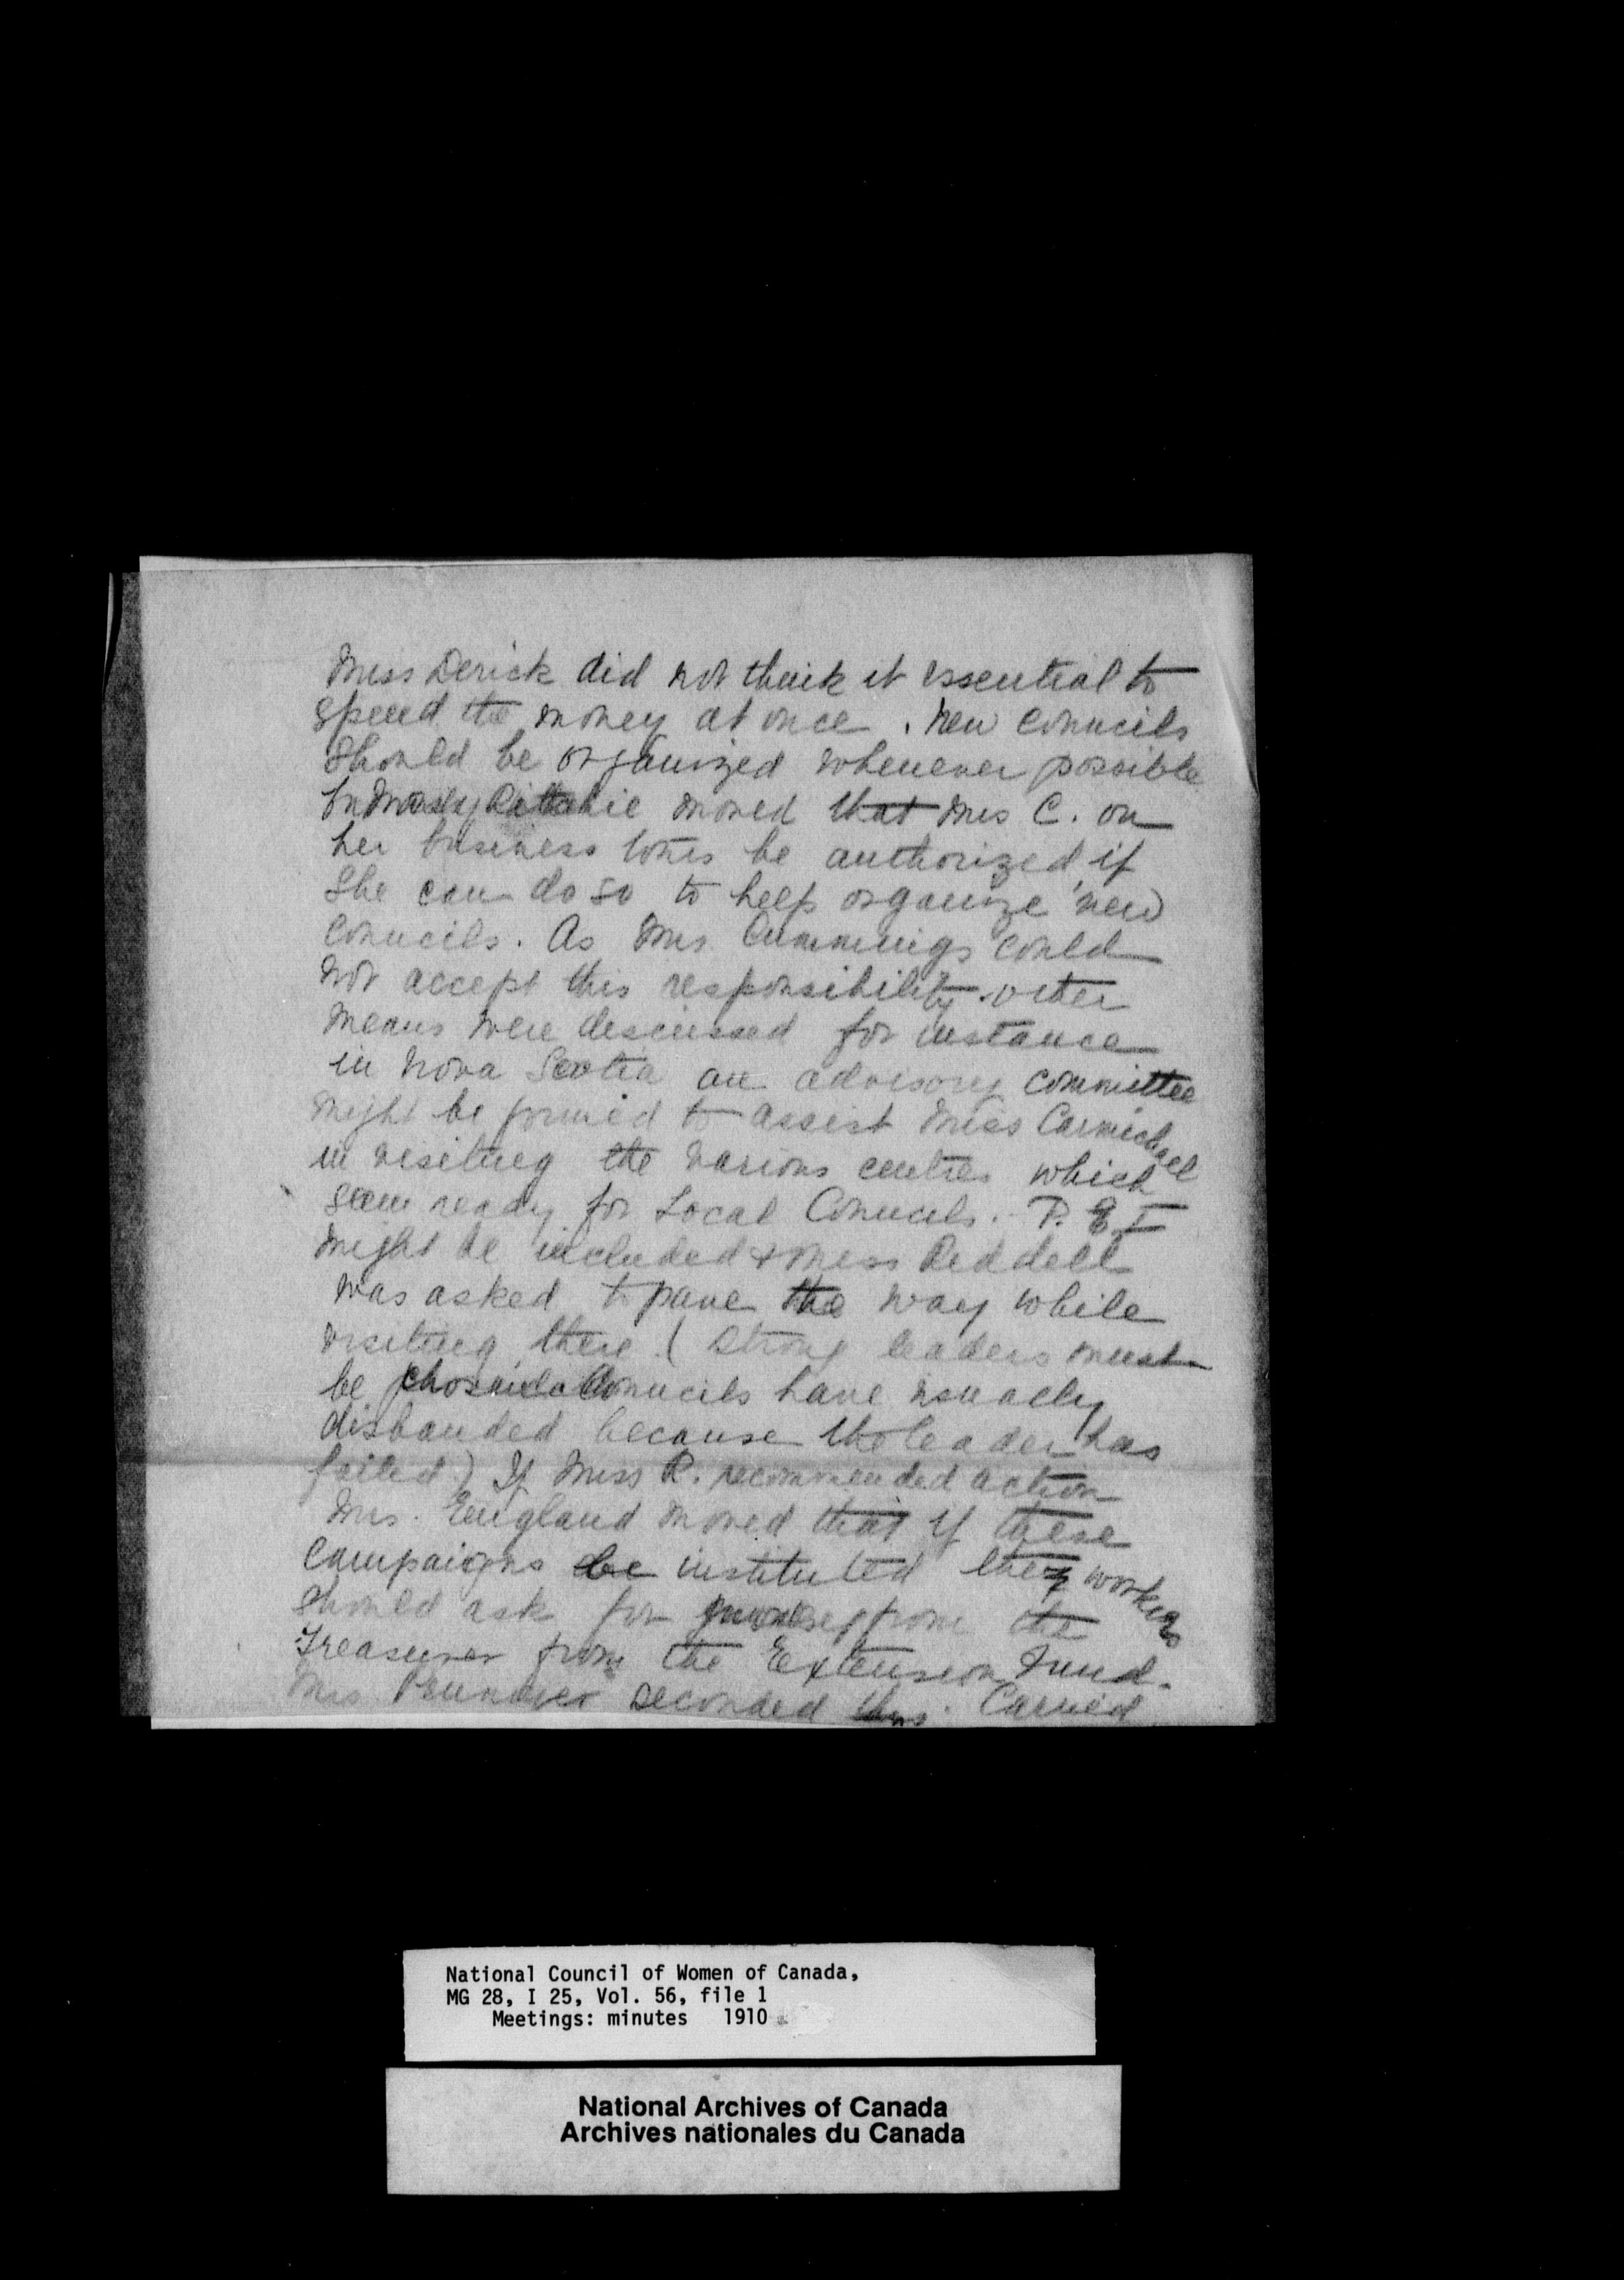 Miss Derick did not think it essential to
spend the money at once. New Councils
should be organized whenever possible
Ritchie moved that Mrs C. on
her business tours be authorized, if
she can do so to help organize new
Councils. As Mrs. Cummings could
not accept this responsibility other
means were discussed for instance
in Nova Scotia an advisory committee
might be formed to assist Miss Carmichael
in visiting the various centres which
seem ready for Local Councils. P. E. I
might be included & Miss Riddell
was asked to pave the way while
visiting there. (Strong leaders must
be chosen Councils have usually
disbanded because the leader has
failed.) If Miss R. recommended action
Mrs. England moved that if these
campaigns be instituted the workers
should ask for money from the
Treasurer from the Extension Fund.
Mrs. seconded this. Carried
National Council of Women of Canada,
MG 28, I 25, Vol. 56, file 1
Meetings: minutes 1910
National Archives of Canada
Archives nationales du Canada